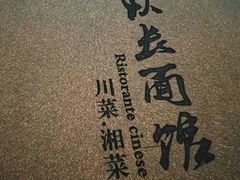 长面馆
Ristorante cinese
川菜·湘菜